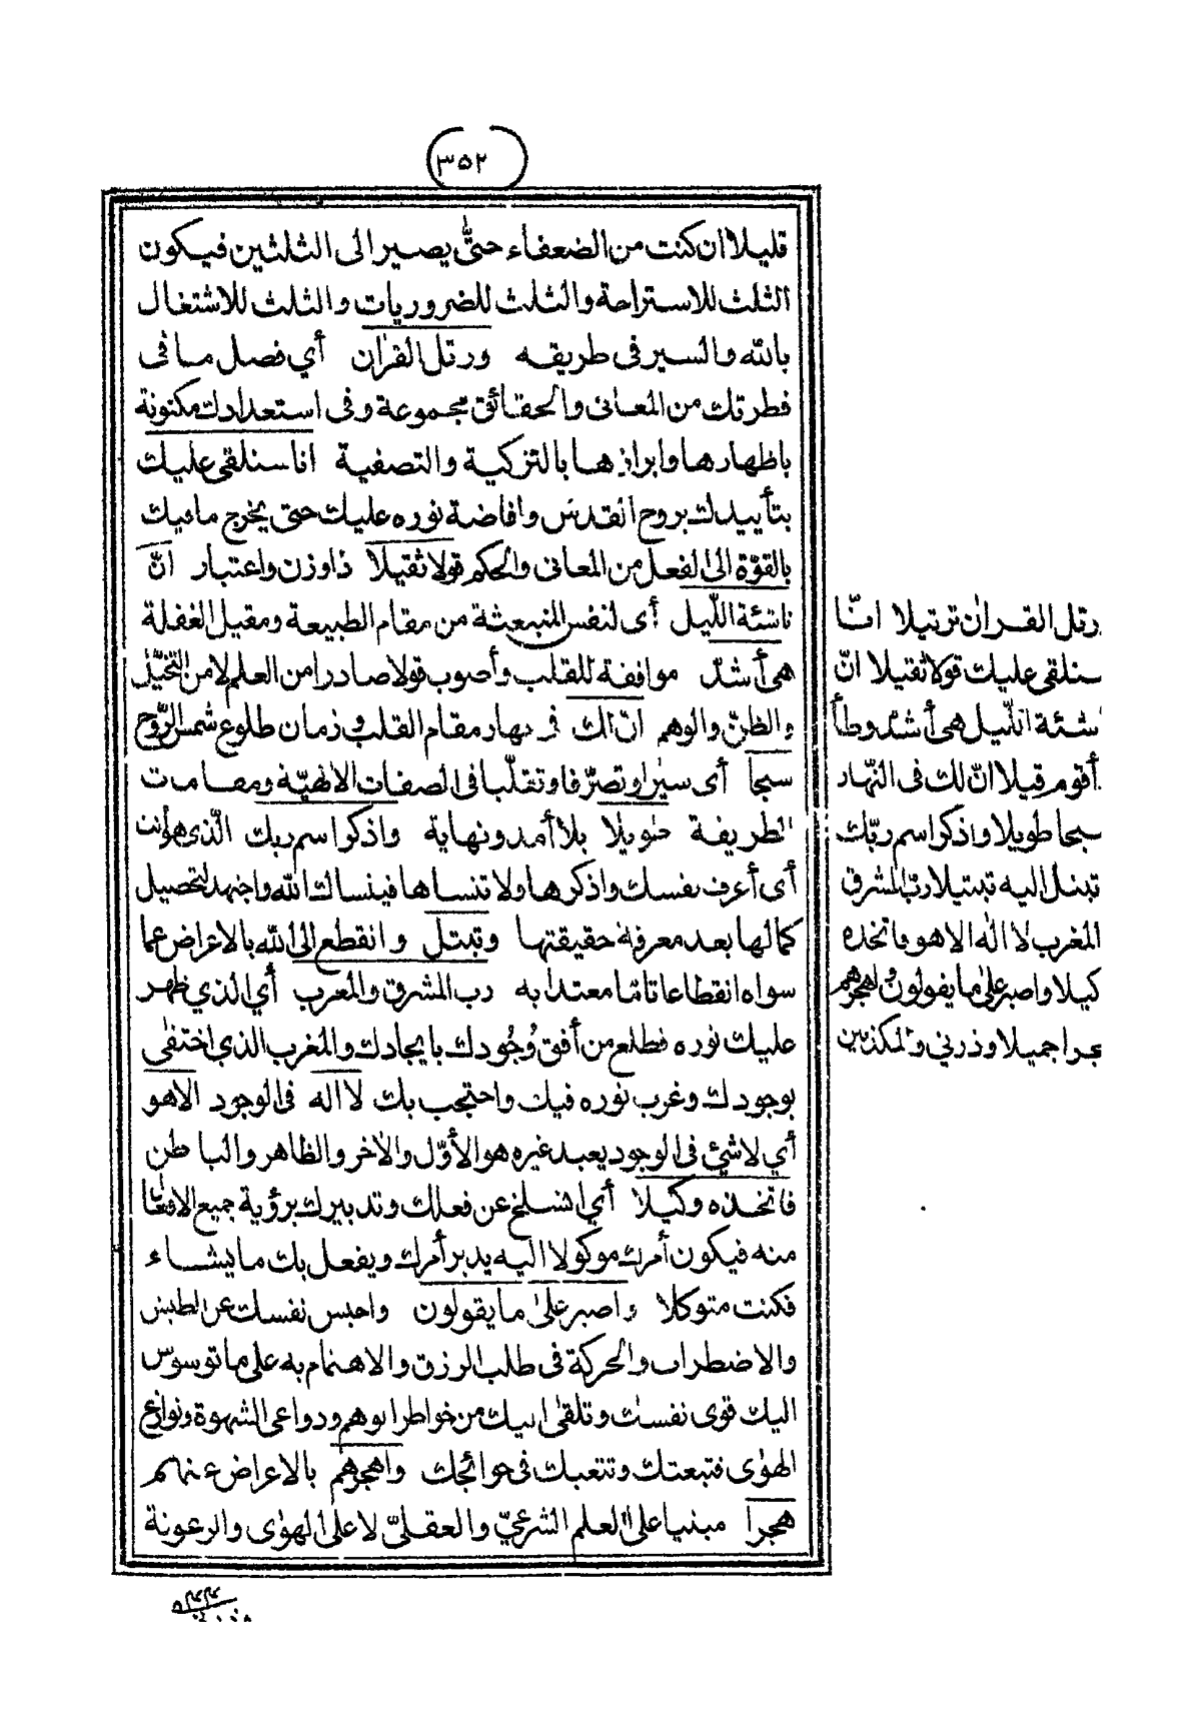 ٣٥٢
قليلا ان كنت من الضعفاء حتّى يصير الى الثلثين فيكون
الثلث للاستراحة والثلث للضروريات والثلث للاشتغال
بالله والسير فى طريقه ورتل القرآن أي فصل ما فى
فطرتك من المعانى والحقائق مجموعة وفى استعدادك مكنونة
باظهارها وابرازها بالتزكية والتصفية انا سنلقى عليك
بتأييدك بروح القدس وافاضة نوره عليك حتى يخرج ما فيك
بالقوّة الى الفعل من المعانى والحكم قولا ثقيلا ذا وزن واعتبار انّ
ناشئة اللّيل أى لنفس المنبعثة من مقام الطبيعة ومقيل الغفلة
هى أشدّ موافقة للقلب وأصوب قولا صادرا من العلم لا من التخيّل
والظنّ والوهم انّ لك فى نهار مقام القلب وزمان طلوع شمس الرّوح
سبحا أى سيرا وتصرّفا وتقلّبا فى الصفات الالٰهيّة ومقامات
الطريقة طويلا بلا أمد ونهاية واذكر اسم ربك الّذى هو أنت
أى أعرف نفسك واذكرها ولا تنساها فينساك الله واجهد لتحصيل
كمالها بعد معرفة حقيقتها وتبتل وانقطع الى الله بالاعراض عما
سواه انقطاعا تاما معتدا به رب المشرق والمغرب أي الذي ظهر
عليك نوره فطلع من أفق وُجُودك بايجادك والمغرب الذي اختفى
بوجودك وغرب نوره فيك واحتجب بك لا اله فى الوجود الا هو
أي لا شئ فى الوجود يعبد غيره هو الأوّل والآخر والظاهر والباطن
فاتخذه وكيلا أي انسلخ عن فعلك وتدبيرك برؤية جميع الافعال
منه فيكون أمرك موكولا اليه يدبر أمرك ويفعل بك ما يشاء
فكنت متوكلا واصبر على ما يقولون واحبس نفسك عن الطيش
والاضطراب والحركة فى طلب الرزق والاهتمام به على ما توسوس
اليك قوى نفسك وتلقى اليك من خواطر الوهم ودواعى الشهوة ونوازع
الهوٰى فتبعتك وتتعبك فى حوائجك واهجرهم بالاعراض عنهم
هجرا مبنيا على العلم الشرعيّ والعقليّ لا على الهوٰى والرعونة
رتل القران ترتيلا انّا
سنلقى عليك قولا ثقيلا انّ
شئة اللّيل هى أشدّ وطأ
أقوم قيلا انّ لك فى النّهار
سبحا طويلا واذكر اسم ربّك
تبتل اليه تبتيلا ربّ المشرق
المغرب لا اله الا هو فاتخذه
كيلا واصبر على ما يقولون واهجرهم
جرا جميلا وذرني والمكذبين